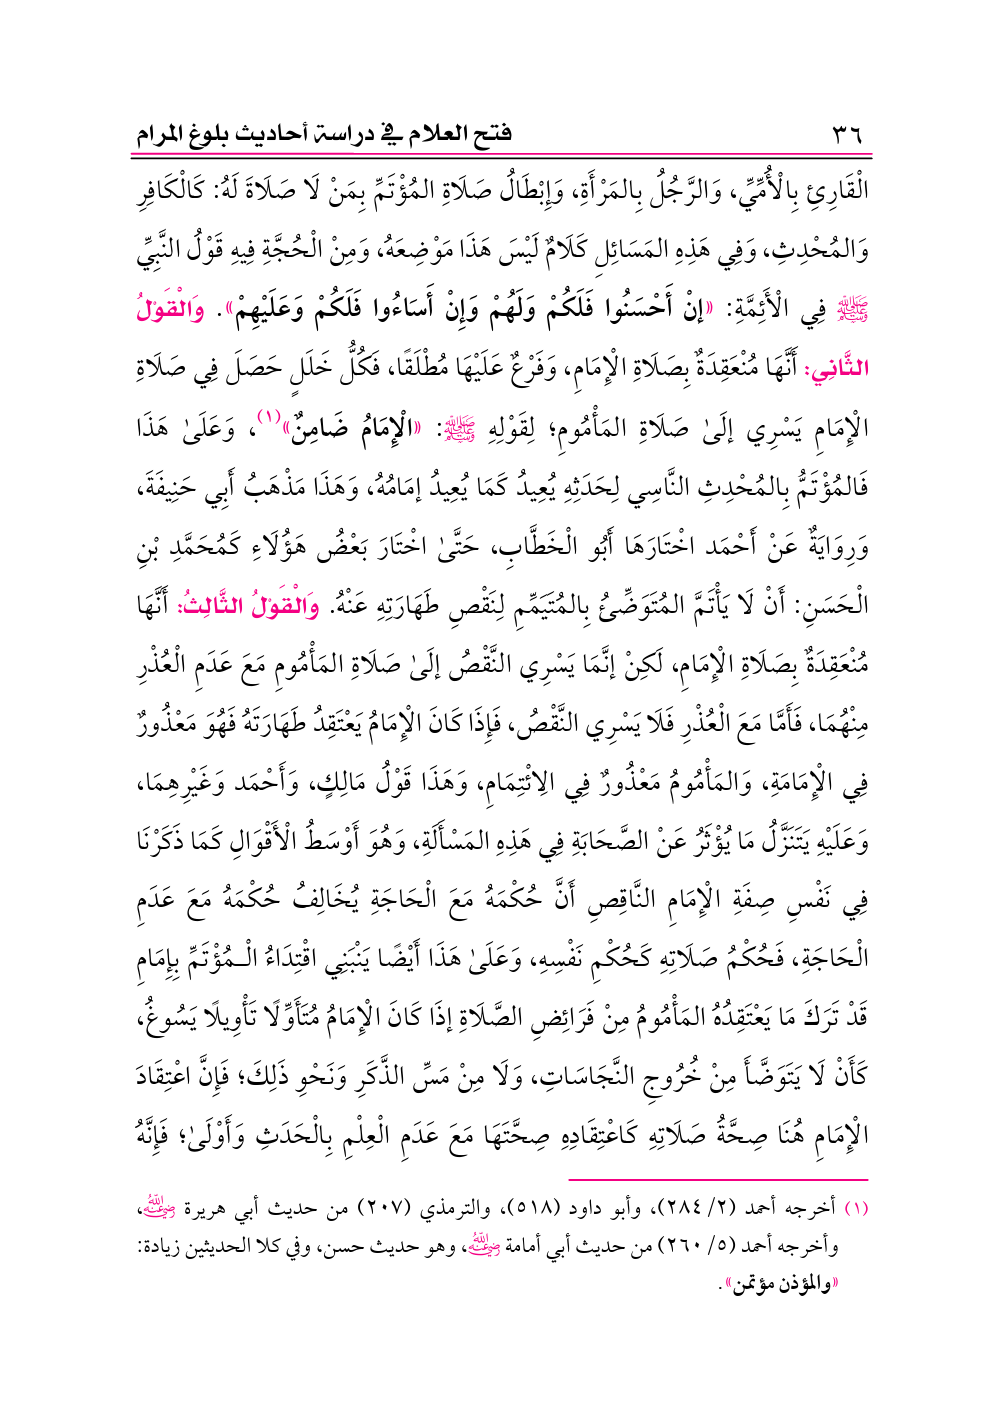 ٣٦ فتح العلام في دراسة أحاديث بلوغ المرام
الْقَارِئِ بِالْأُمِّيِّ، وَالرَّجُلُ بِالمَرْأَةِ، وَإِبْطَالُ صَلَاةِ المُؤْتَمِّ بِمَنْ لَا صَلَاةَ لَهُ: كَالْكَافِرِ
وَالمُحْدِثِ، وَفِي هَذِهِ المَسَائِلِ كَلَامٌ لَيْسَ هَذَا مَوْضِعَهُ، وَمِنْ الْحُجَّةِ فِيهِ قَوْلُ النَّبِيِّ
ﷺ فِي الْأَئِمَّةِ: «إنْ أَحْسَنُوا فَلَكُمْ وَلَهُمْ وَإِنْ أَسَاءُوا فَلَكُمْ وَعَلَيْهِمْ». وَالْقَوْلُ
الثَّانِي: أَنَّهَا مُنْعَقِدَةٌ بِصَلَاةِ الْإِمَامِ، وَفَرْعٌ عَلَيْهَا مُطْلَقًا، فَكُلُّ خَلَلٍ حَصَلَ فِي صَلَاةِ
الْإِمَامِ يَسْرِي إلَىٰ صَلَاةِ المَأْمُومِ؛ لِقَوْلِهِ ﷺ: «الْإِمَامُ ضَامِنٌ»(١)، وَعَلَىٰ هَذَا
فَالمُؤْتَمُّ بِالمُحْدِثِ النَّاسِي لِحَدَثِهِ يُعِيدُ كَمَا يُعِيدُ إمَامُهُ، وَهَذَا مَذْهَبُ أَبِي حَنِيفَةَ،
وَرِوَايَةٌ عَنْ أَحْمَد اخْتَارَهَا أَبُو الْخَطَّابِ، حَتَّىٰ اخْتَارَ بَعْضُ هَؤُلَاءِ كَمُحَمَّدِ بْنِ
الْحَسَنِ: أَنْ لَا يَأْتَمَّ المُتَوَضِّئُ بِالمُتَيَمِّمِ لِنَقْصِ طَهَارَتِهِ عَنْهُ. وَالْقَوْلُ الثَّالِثُ: أَنَّهَا
مُنْعَقِدَةٌ بِصَلَاةِ الْإِمَامِ، لَكِنْ إنَّمَا يَسْرِي النَّقْصُ إلَىٰ صَلَاةِ المَأْمُومِ مَعَ عَدَمِ الْعُذْرِ
مِنْهُمَا، فَأَمَّا مَعَ الْعُذْرِ فَلَا يَسْرِي النَّقْصُ، فَإِذَا كَانَ الْإِمَامُ يَعْتَقِدُ طَهَارَتَهُ فَهُوَ مَعْذُورٌ
فِي الْإِمَامَةِ، وَالمَأْمُومُ مَعْذُورٌ فِي الِائْتِمَامِ، وَهَذَا قَوْلُ مَالِكٍ، وَأَحْمَد وَغَيْرِهِمَا،
وَعَلَيْهِ يَتَنَزَّلُ مَا يُؤْثَرُ عَنْ الصَّحَابَةِ فِي هَذِهِ المَسْأَلَةِ، وَهُوَ أَوْسَطُ الْأَقْوَالِ كَمَا ذَكَرْنَا
فِي نَفْسِ صِفَةِ الْإِمَامِ النَّاقِصِ أَنَّ حُكْمَهُ مَعَ الْحَاجَةِ يُخَالِفُ حُكْمَهُ مَعَ عَدَمِ
الْحَاجَةِ، فَحُكْمُ صَلَاتِهِ كَحُكْمِ نَفْسِهِ، وَعَلَىٰ هَذَا أَيْضًا يَنْبَنِي اقْتِدَاءُ الْـمُؤْتَمِّ بِإِمَامٍ
قَدْ تَرَكَ مَا يَعْتَقِدُهُ المَأْمُومُ مِنْ فَرَائِضِ الصَّلَاةِ إذَا كَانَ الْإِمَامُ مُتَأَوِّلًا تَأْوِيلًا يَسُوغُ،
كَأَنْ لَا يَتَوَضَّأَ مِنْ خُرُوجِ النَّجَاسَاتِ، وَلَا مِنْ مَسِّ الذَّكَرِ وَنَحْوِ ذَلِكَ؛ فَإِنَّ اعْتِقَادَ
الْإِمَامِ هُنَا صِحَّةُ صَلَاتِهِ كَاعْتِقَادِهِ صِحَّتَهَا مَعَ عَدَمِ الْعِلْمِ بِالْحَدَثِ وَأَوْلَىٰ؛ فَإِنَّهُ
(١) أخرجه أحمد (٢/ ٢٨٤)، وأبو داود (٥١٨)، والترمذي (٢٠٧) من حديث أبي هريرة رضي الله عنه،
وأخرجه أحمد (٥/ ٢٦٠) من حديث أبي أمامة رضي الله عنه، وهو حديث حسن، وفي كلا الحديثين زيادة:
«والمؤذن مؤتمن».